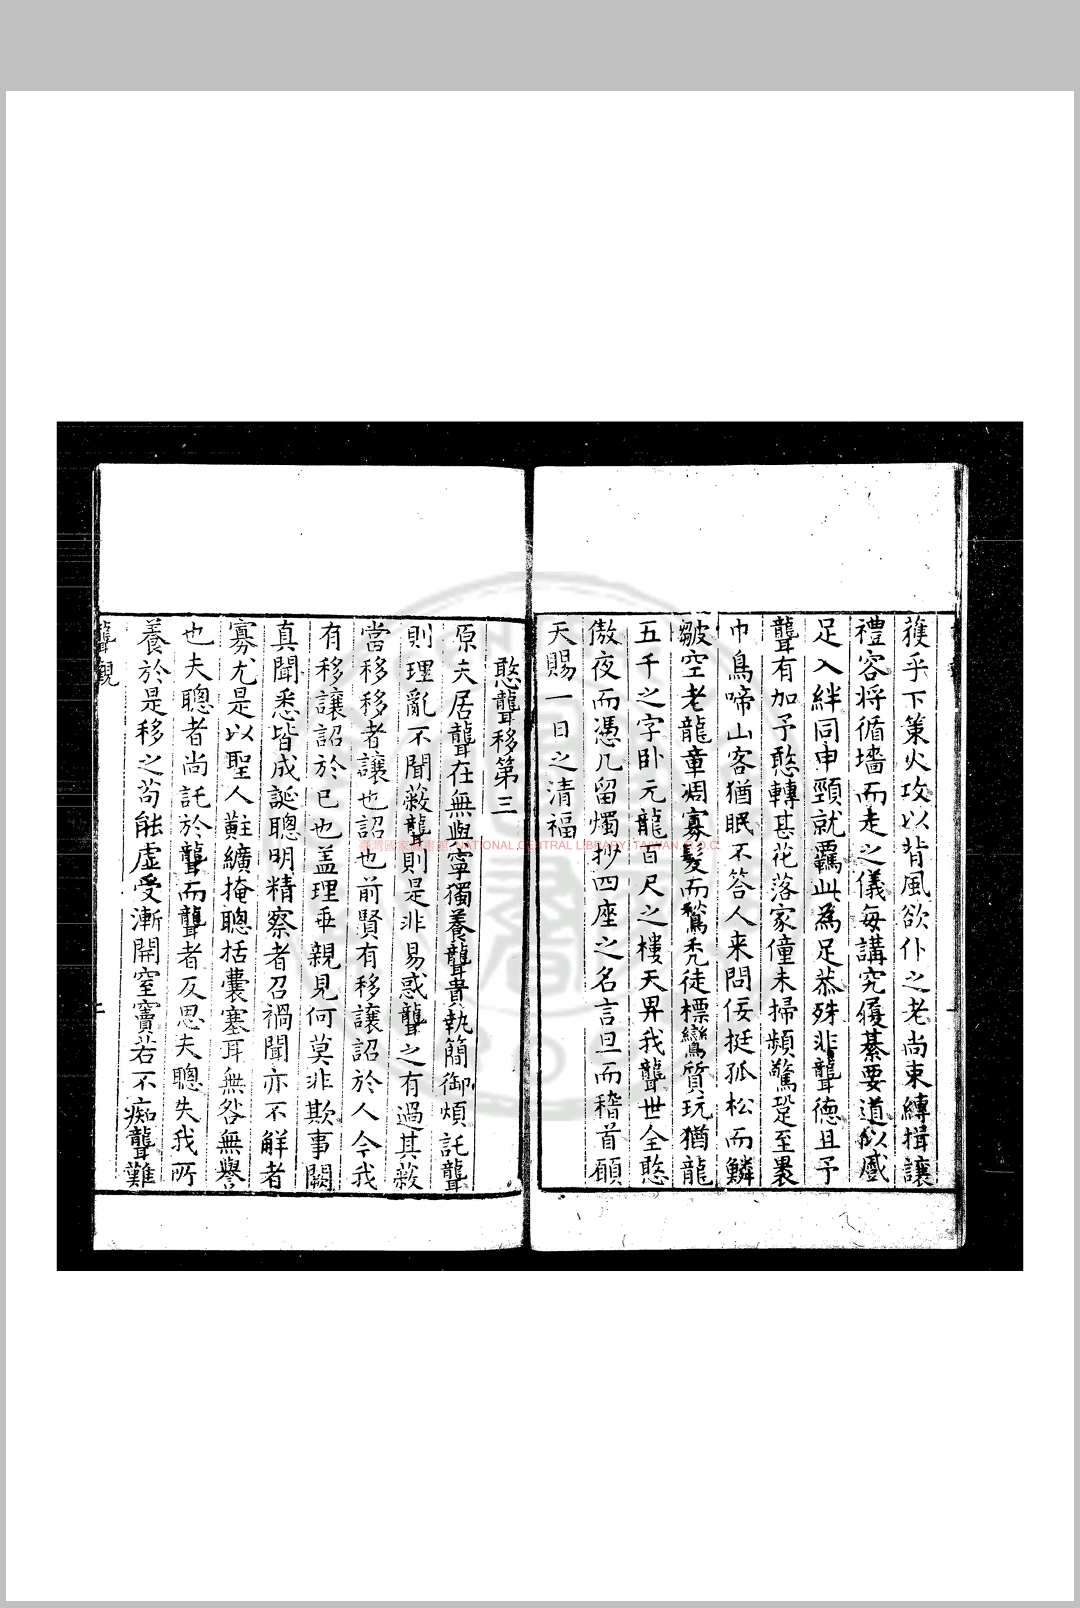 獲乎下策火攻以背風欲仆之老尚束縛揖讓
禮容将循墻而走之儀每講究履綦要道以感
足入絆同申頸就羈此為足恭殊非聾德且予
聾有加予憨轉甚花落家僮未掃頻驚跫至裹
巾鳥啼山客猶眠不答人来問佞挺孤松而鱗
皺空老龍童凋寡髮而鶖禿徒標鸞質玩猶龍
五千之字卧元龍百尺之樓天畀我聾世全憨
傲夜而憑几留燭抄四座之名言旦而稽首願
天賜一日之清福
憨聾移第三
原夫居聾在無與寧獨養聾貴執簡御煩託聾
則理亂不聞蔽聾則是非易惑聾之有過其蔽
當移移者讓也詔也前賢有移讓詔於人今我
有移讓詔於已也盖理垂親見何莫非欺事闕
真聞悉皆成誕聰明精察者召禍聞亦不鮮者
寡尤是以聖人黈纊掩聰括囊塞耳無咎無譽
也夫聰者尚託於聾而聾者反思夫聰失我所
養於是移之苟能虛受漸開窒竇若不痴聾難
聾觀
二
臺灣國家圖書館 NATIONAL CENTRAL LIBRARY, TAIWAN, R.O.C.